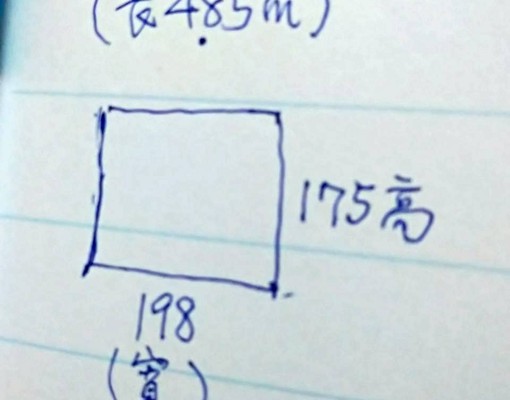 (長4.85m)
175高
198
(寬)